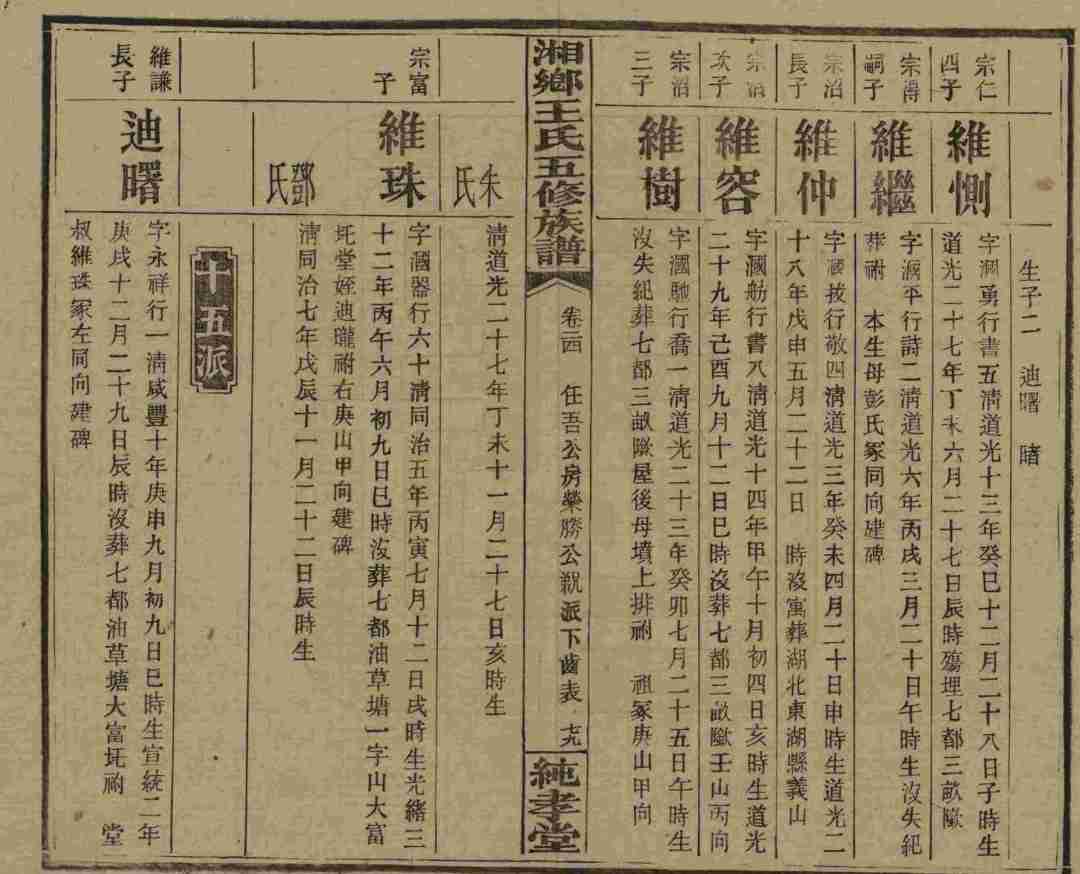 生子二 迪曙 暏
宗仁
四子
維惻
字潤勇行書五清道光十三年癸巳十二月二十八日子時生
道光二十七年丁未六月二十七日辰時殤埋七都三畝
宗得
嗣子
維繼
字潤平行詩二清道光六年丙戌三月二十日午時生沒失紀
葬祔 本生母彭氏冢同向建碑
宗沼
長子
維仲
字 拔行敬四清道光三年癸未四月二十日申時生道光二
十八年戊申五月二十二日 時沒寓葬湖北東湖縣義山
宗沼
次子
維容
字 舫行書八清道光十四年甲午十月初四日亥時生道光
二十九年己酉九月十二日巳時沒葬七都三畝 壬山丙向
宗沼
三子
維樹
字 馳行喬一清道光二十三年癸卯七月二十五日午時生
沒失紀葬七都三畝 屋後母墳上排祔 祖冢庚山甲向
湘鄉王氏五修族譜
卷二四 任吾公房榮勝公 派下齒表 七九
純孝堂
朱氏
清道光二十七年丁未十一月二十七日亥時生
宗富
子
維珠
字 器行六十清同治五年丙寅七月十二日戌時生光緒三
十二年丙午六月初九日巳時沒葬七都油草塘一字山大富
圫堂姪迪曨祔右庚山甲向建碑
鄧氏
清同治七年戊辰十一月二十二日辰時生
十五派
維謙
長子
迪曙
字永祥行一清咸豐十年庚申九月初九日巳時生宣統二年
庚戌十二月二十九日辰時沒葬七都油草塘大富圫祔 堂
叔維珠冢左同向建碑